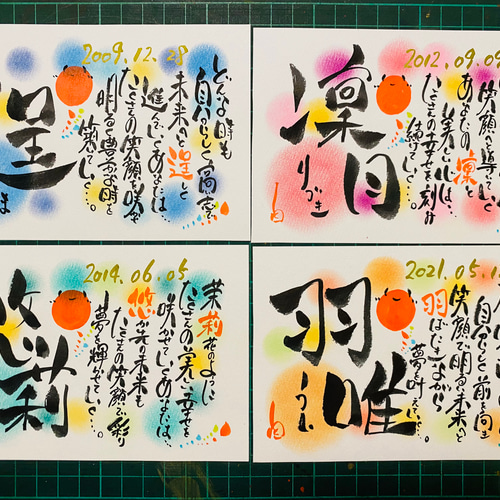 2009.12.28
どんな時も
自分らしく
未来へと逞しく
進んでくあなたは…
たくさんの笑顔を味方
明るく豊かな時を
築いていく…。
逞
ま
2012.09.09
笑顔へと導いていく
あなたの凛と
美しい心は…
たくさんの幸せを刻み
続けていく…。
凛月
りづき
2014.06.05
茉莉花のように
たくさんの実りと幸せを
咲かせていくあなたは…
悠か先の未来も
たくさんの笑顔で彩り
夢を輝かせていく…。
悠莉
2021.05.1
自分らしく前を向き
笑顔で明るい未来へと
羽ばたきながら
夢を叶えていく…。
羽唯
うい